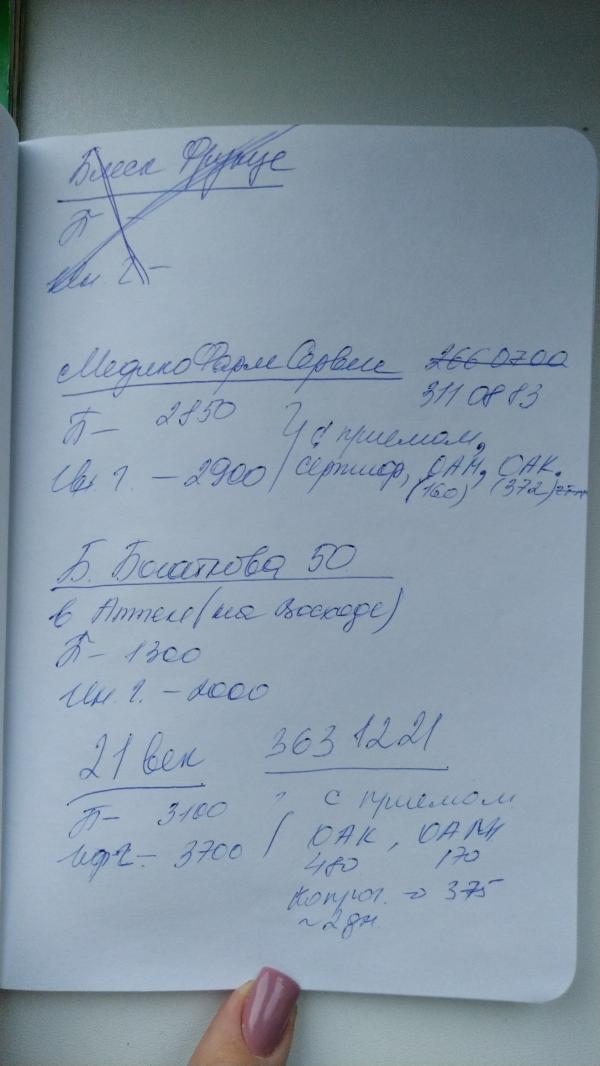 Блеск Фрунзе
П -
Ин. г. -
МедикоФармСервис 2660700
3110883
П - 2850
с приемом,
Ин. г. - 2900 сертиф, ОАМ, ОАК.
(160) (372)
Б. Богаткова 50
в Аптеке (на Восходе)
П - 1300
Ин. г. - 2000
21 век 363 12 21
П - 3100 с приемом
г. - 3700 ОАК, ОАМ
480 170
Копрог. - 375
~ 2 дн.